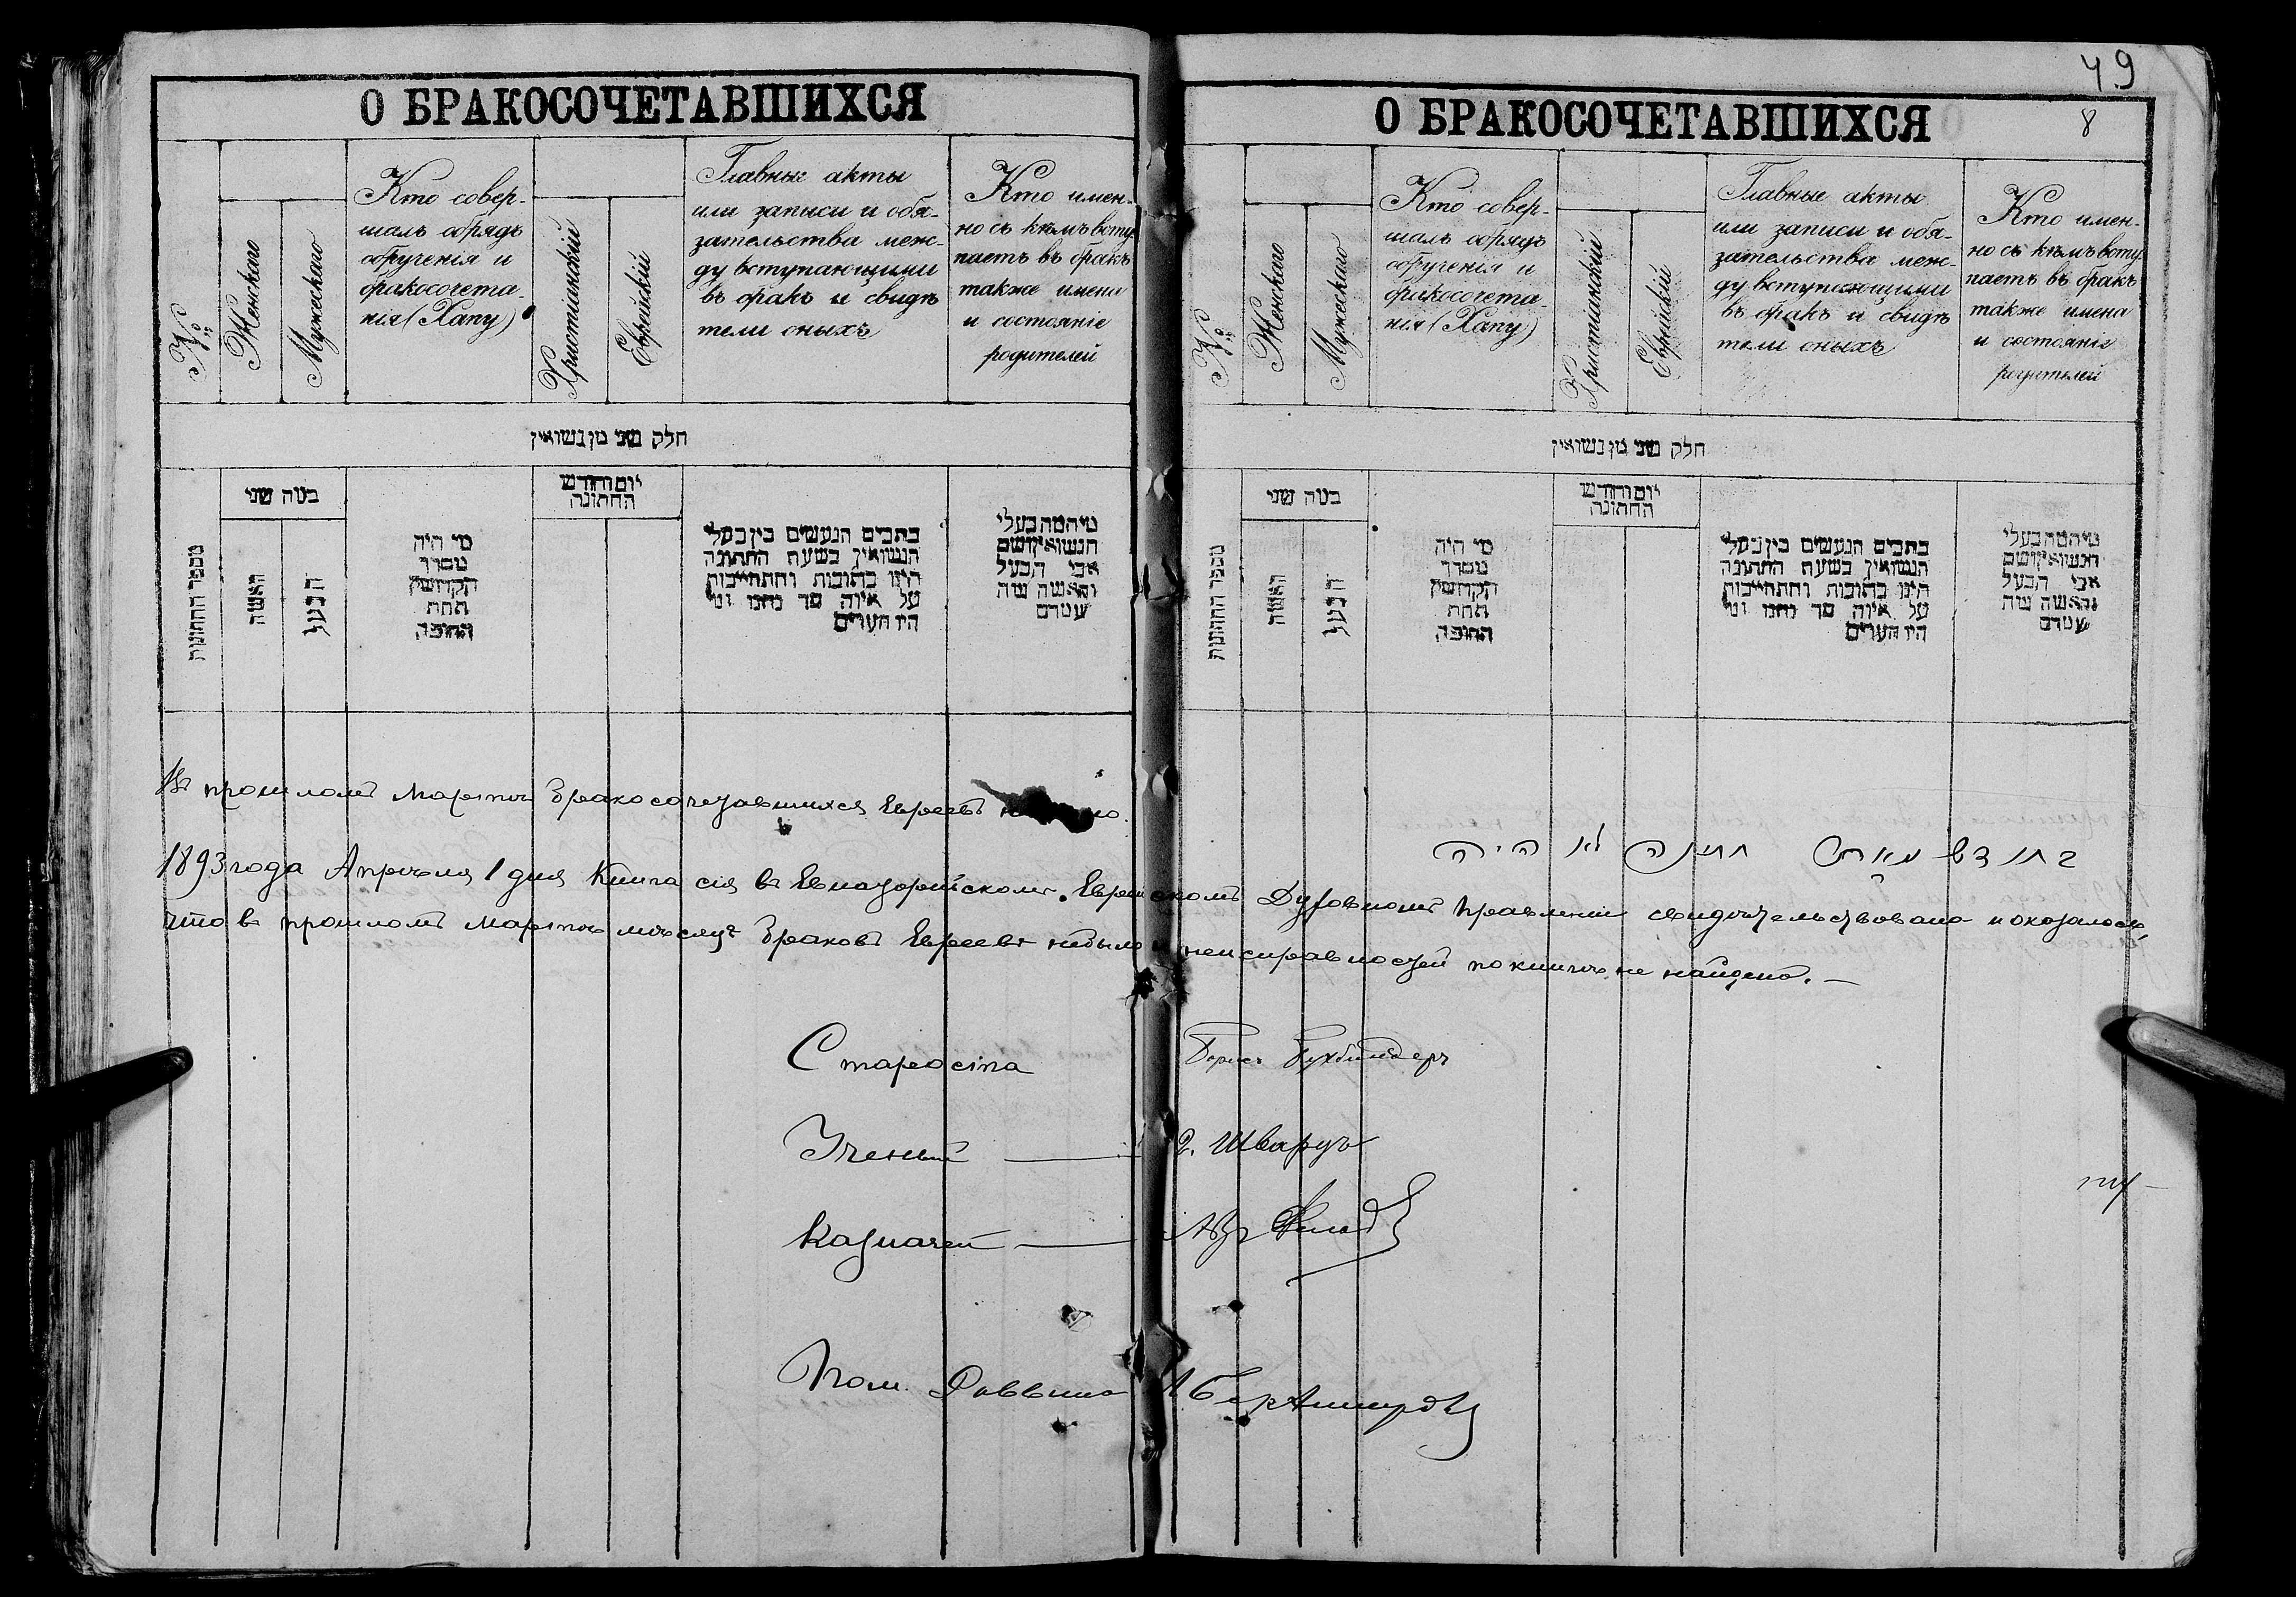 49
О БРАКОСОЧЕТАВШИХСЯ
№
Женскаго
Мужескаго
Кто совер-
шалъ обрядъ
обрученія и
бракосочета-
нія (Хапу)
Христіанскій
Еврейскій
Главные акты
или записи и обя-
зательства меж-
ду вступающими
въ бракъ и свидѣ
тели оныхъ
Кто имен-
но съ кѣмъ всту
паетъ въ бракъ
также имена
и состояніе
родителей
חלק שני מן נשואין
מספר החתונות
כמה שני
האשה
הבעל
מי היה
מסדר
הקדושין
תחת
החופה
יום וחודש
החתונה
כתבים הנעשים בין בעלי
הנשואין בשעת החתונה
היינו כתובות והתחייבות
על איזה סך נתנו ומי
היו העדים
מיהמה בעלי
הנשואין ושם
אבי הבעל
והאשה ומה
О БРАКОСОЧЕТАВШИХСЯ
8
№
Женскаго
Мужескаго
Кто совер-
шалъ обрядъ
обрученія и
бракосочета-
нія (Хапу)
Христіанскій
Еврейскій
Главные акты
или записи и обя-
зательства меж-
ду вступающими
въ бракъ и свидѣ
тели оныхъ
Кто имен-
но съ кѣмъ всту
паетъ въ бракъ
также имена
и состояніе
родителей
חלק שני מן נשואין
מספר החתונות
כמה שני
האשה
הבעל
מי היה
מסדר
הקדושין
תחת
החופה
יום וחודש
החתונה
כתבים הנעשים בין בעלי
הנשואין בשעת החתונה
היינו כתובות והתחייבות
על איזה סך נתנו ומי
היו העדים
מיהמה בעלי
הנשואין ושם
אבי הבעל
והאשה ומה
Въ прошломъ Мартѣ бракосочетавшихся Евреевъ
בחודש מארט חתונה לא היה
1893 года Апрѣля 1 дня Книга сія въ Евпаторійскомъ Еврейскомъ Духовномъ Правленіи свидѣтельствована и оказалось,
что въ прошломъ Мартѣ мѣсяцѣ браковъ Евреевъ небыло и неисправностей по книгѣ не найдено. —
Староста Борисъ Бухбиндеръ
Ученый — Шварцъ
Казначей —
Пом. Раввина